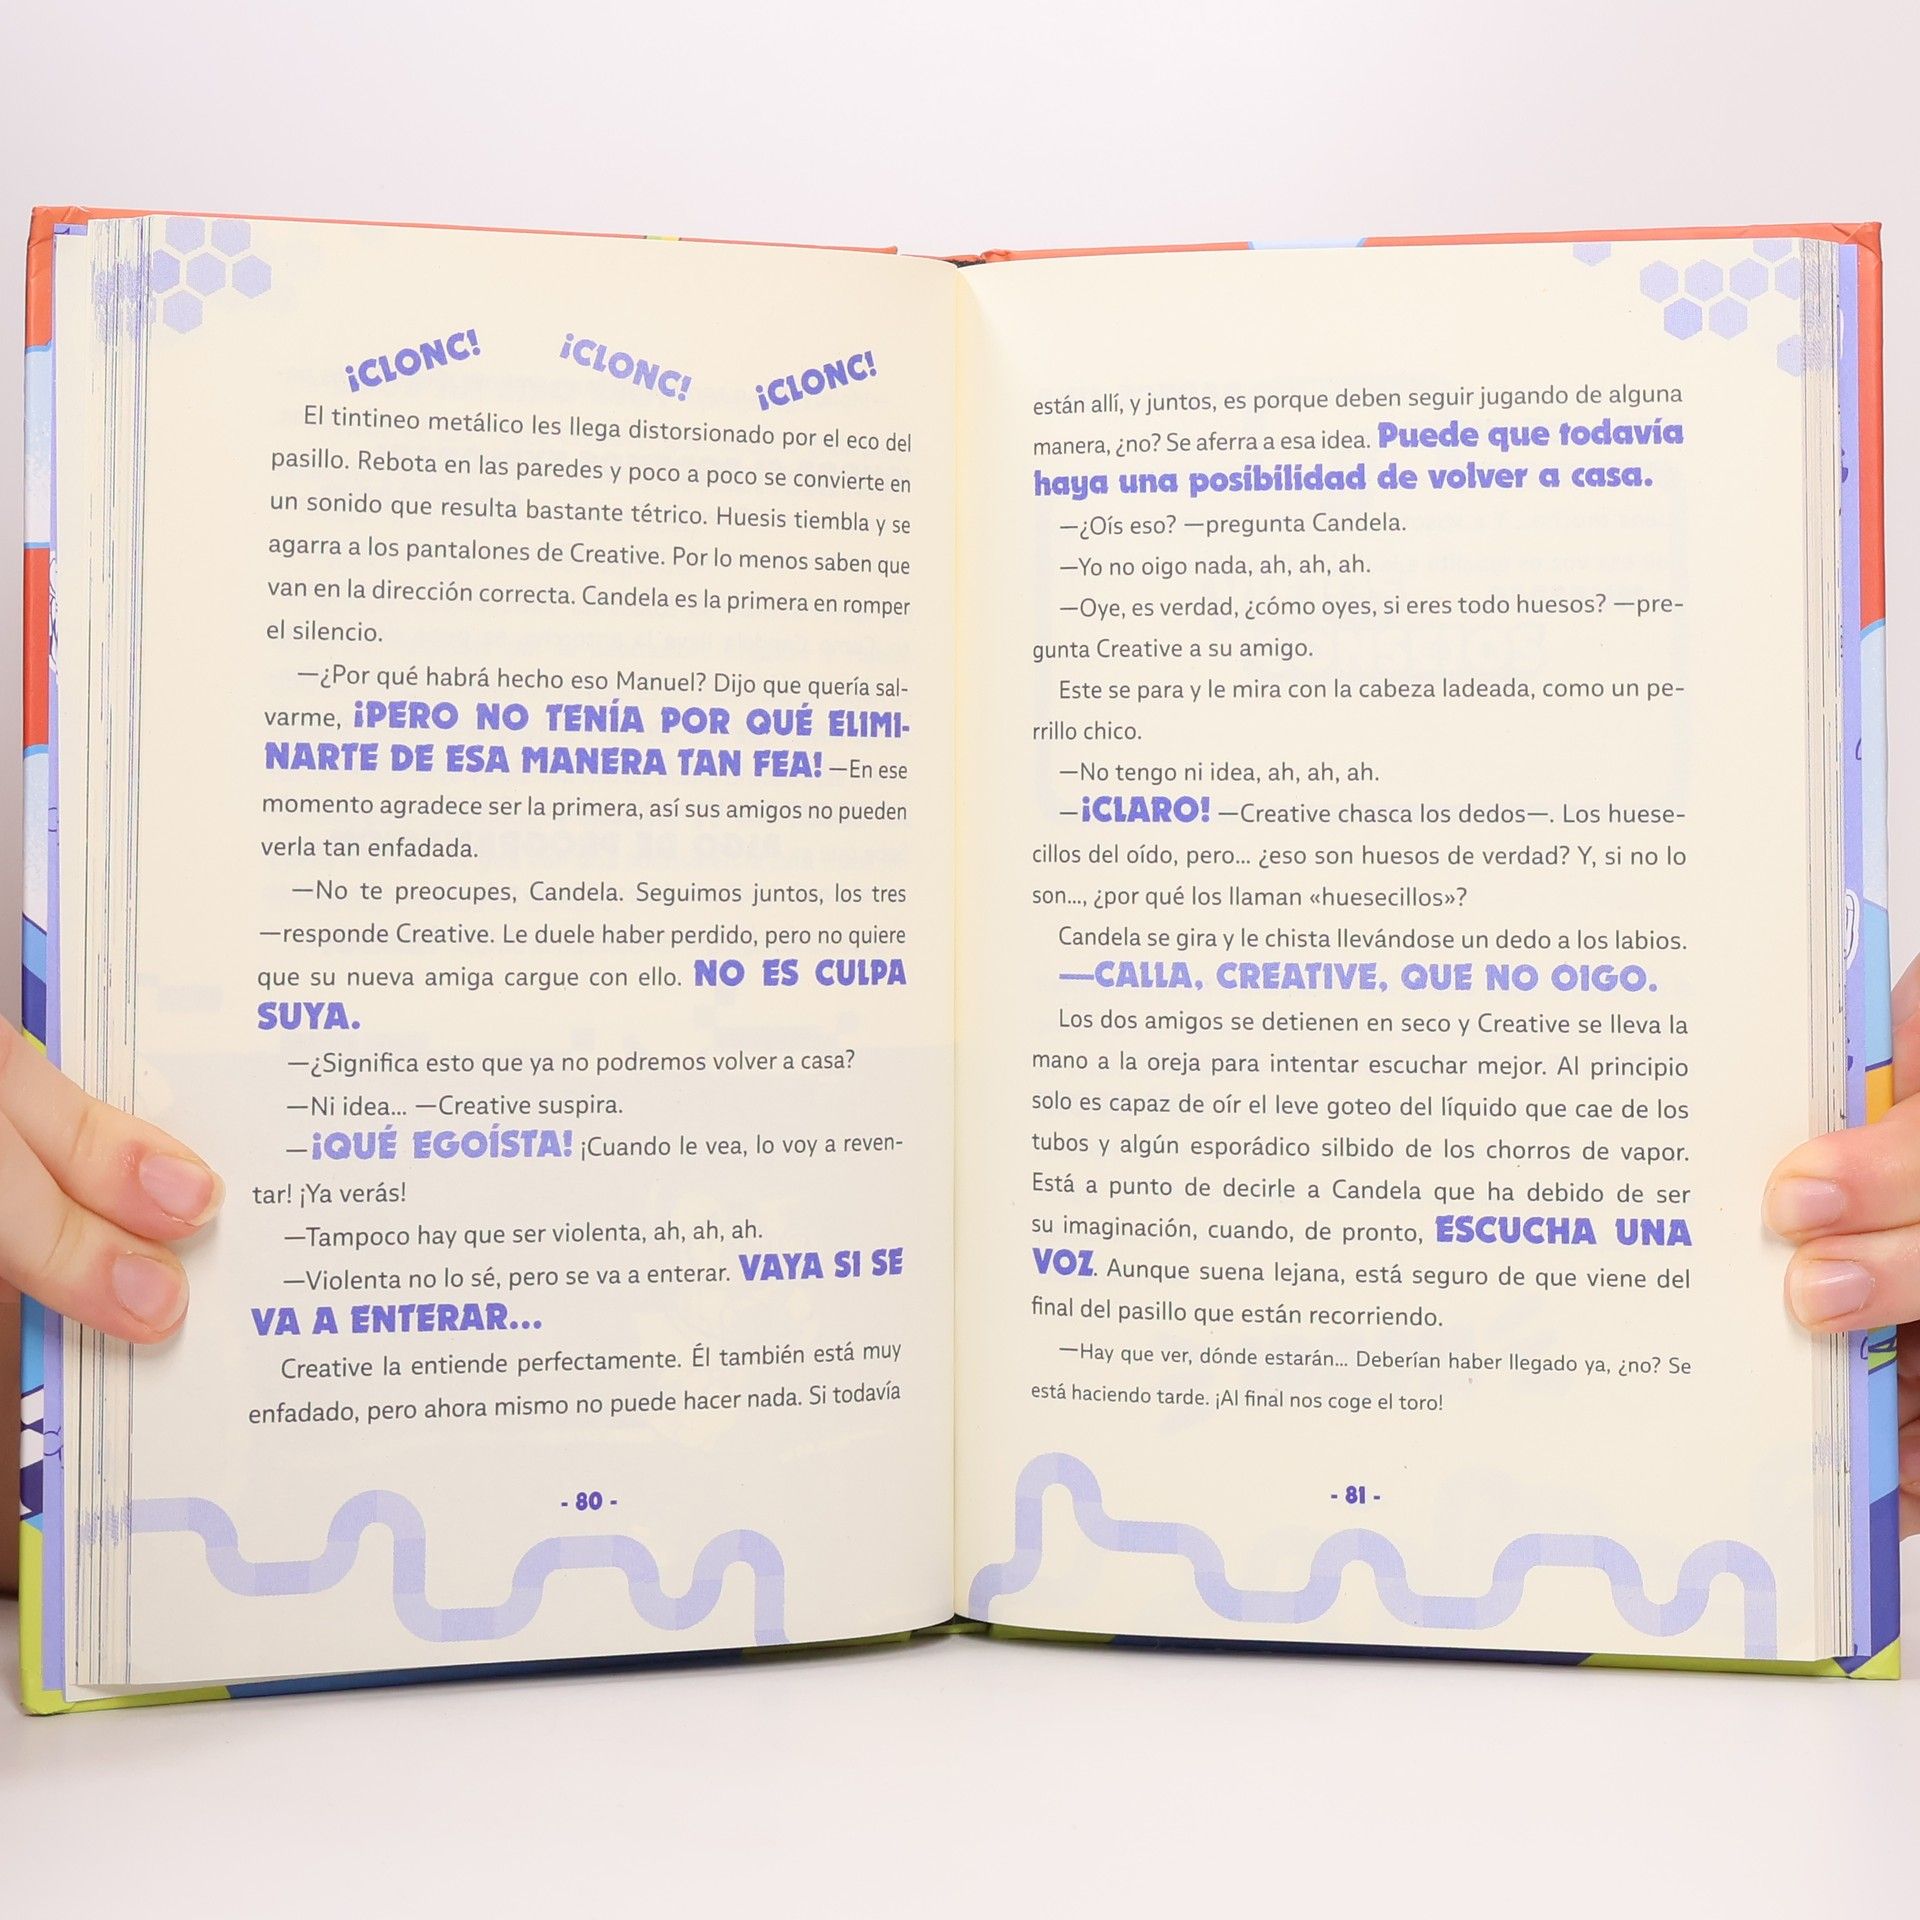 ¡CLONC! ¡CLONC! ¡CLONC!
El tintineo metálico les llega distorsionado por el eco del
pasillo. Rebota en las paredes y poco a poco se convierte en
un sonido que resulta bastante tétrico. Huesis tiembla y se
agarra a los pantalones de Creative. Por lo menos saben que
van en la dirección correcta. Candela es la primera en romper
el silencio.
—¿Por qué habrá hecho eso Manuel? Dijo que quería sal-
varme, ¡PERO NO TENÍA POR QUÉ ELIMI-
NARTE DE ESA MANERA TAN FEA! —En ese
momento agradece ser la primera, así sus amigos no pueden
verla tan enfadada.
—No te preocupes, Candela. Seguimos juntos, los tres
—responde Creative. Le duele haber perdido, pero no quiere
que su nueva amiga cargue con ello. NO ES CULPA
SUYA.
—¿Significa esto que ya no podremos volver a casa?
—Ni idea... —Creative suspira.
—¡QUÉ EGOÍSTA! ¡Cuando le vea, lo voy a reven-
tar! ¡Ya verás!
—Tampoco hay que ser violenta, ah, ah, ah.
—Violenta no lo sé, pero se va a enterar. VAYA SI SE
VA A ENTERAR...
Creative la entiende perfectamente. Él también está muy
enfadado, pero ahora mismo no puede hacer nada. Si todavía
- 80 -
están allí, y juntos, es porque deben seguir jugando de alguna
manera, ¿no? Se aferra a esa idea. Puede que todavía
haya una posibilidad de volver a casa.
—¿Oís eso? —pregunta Candela.
—Yo no oigo nada, ah, ah, ah.
—Oye, es verdad, ¿cómo oyes, si eres todo huesos? —pre-
gunta Creative a su amigo.
Este se para y le mira con la cabeza ladeada, como un pe-
rrillo chico.
—No tengo ni idea, ah, ah, ah.
—¡CLARO! —Creative chasca los dedos—. Los huese-
cillos del oído, pero... ¿eso son huesos de verdad? Y, si no lo
son..., ¿por qué los llaman «huesecillos»?
Candela se gira y le chista llevándose un dedo a los labios.
—CALLA, CREATIVE, QUE NO OIGO.
Los dos amigos se detienen en seco y Creative se lleva la
mano a la oreja para intentar escuchar mejor. Al principio
solo es capaz de oír el leve goteo del líquido que cae de los
tubos y algún esporádico silbido de los chorros de vapor.
Está a punto de decirle a Candela que ha debido de ser
su imaginación, cuando, de pronto, ESCUCHA UNA
VOZ. Aunque suena lejana, está seguro de que viene del
final del pasillo que están recorriendo.
—Hay que ver, dónde estarán... Deberían haber llegado ya, ¿no? Se
está haciendo tarde. ¡Al final nos coge el toro!
- 81 -